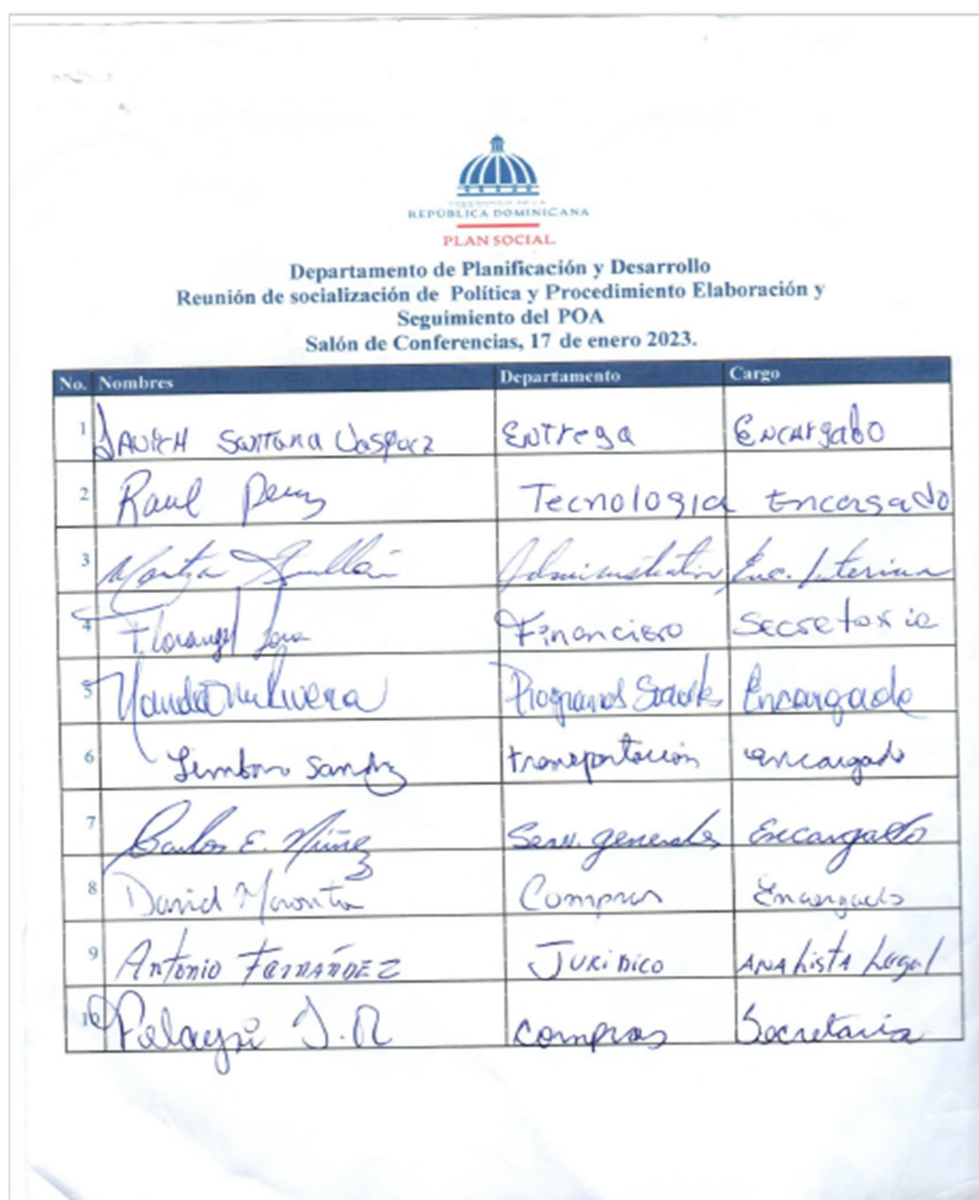 PRESIDENCIA DE LA
REPÚBLICA DOMINICANA
PLAN SOCIAL
Departamento de Planificación y Desarrollo
Reunión de socialización de Política y Procedimiento Elaboración y
Seguimiento del POA
Salón de Conferencias, 17 de enero 2023.
No. Nombres Departamento Cargo
1 Santana Vasquez Entrega Encargado
2 Raul Tecnologia Encargado
3 Enc. Interina
4 Florangel Financiero Secretaria
5 Programas Encargada
6 transportación encargado
7 Carlos E. Núñez Serv. generales Encargado
8 David Compras Encargado
9 Antonio FERNÁNDEZ JURIDICO ANALista Legal
10 J.R Compras Secretaria